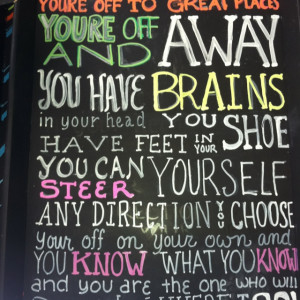 YOURE OFF TO GREAT PLACES
YOURE OFF AND AWAY
YOU HAVE BRAINS
in your head YOU
HAVE FEET IN YOUR SHOE
YOU CAN STEER YOURSELF
ANY DIRECTION YOU CHOOSE
your off on your own and
YOU KNOW WHAT YOU KNOW
and you are the one who will